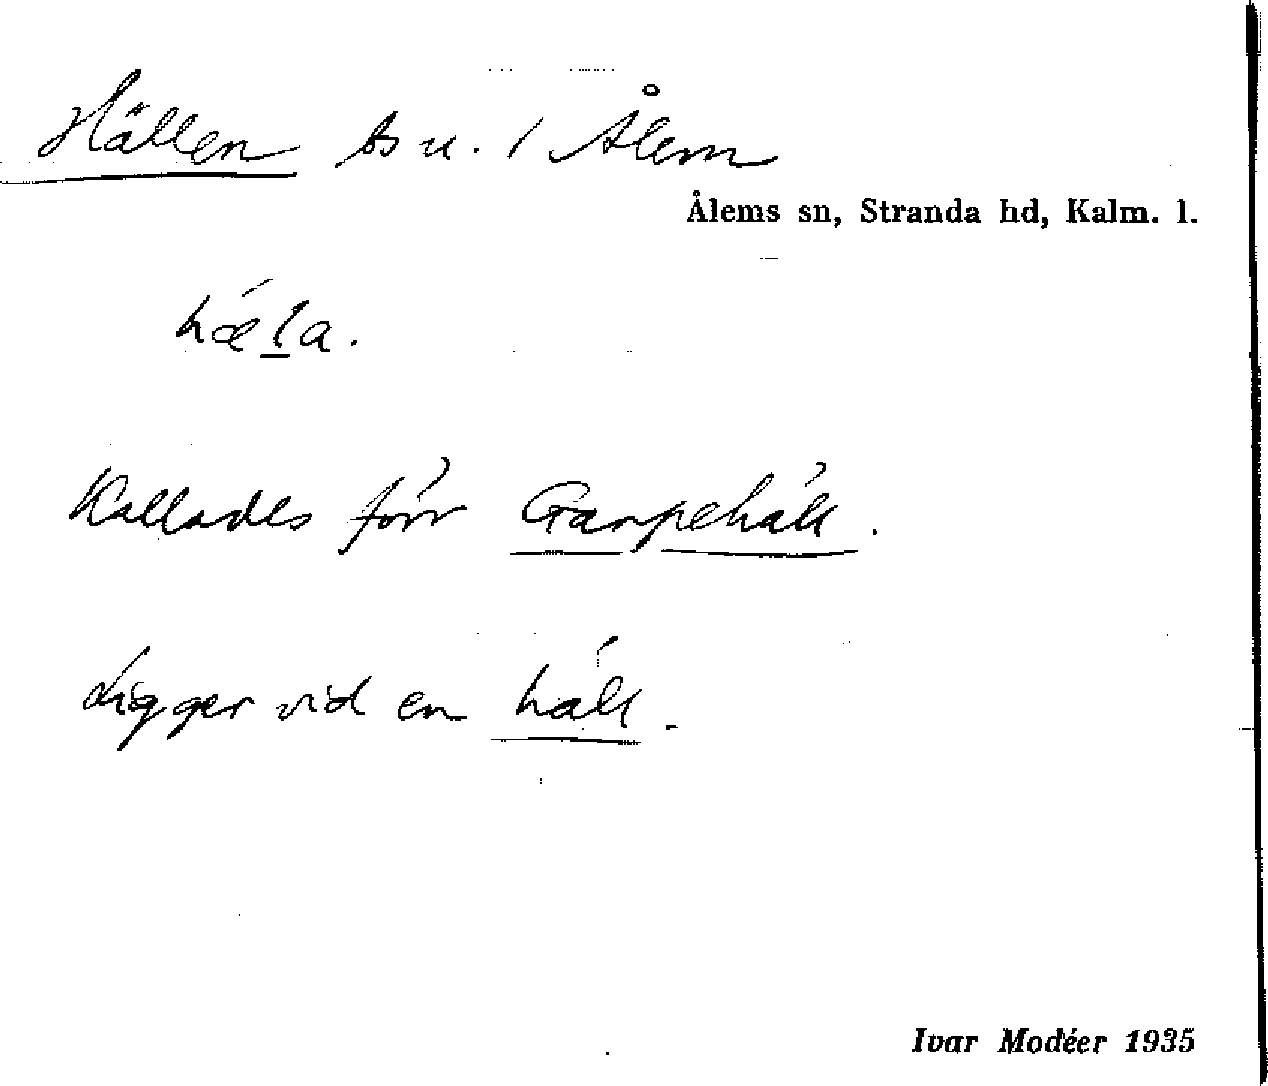 Hällen bs u. 1 Ålem
Ålems sn, Stranda hd, Kalm. l.
hæla.
Kallades förr Garpehäll.
Ligger vid en häll.
Ivar Modéer 1935